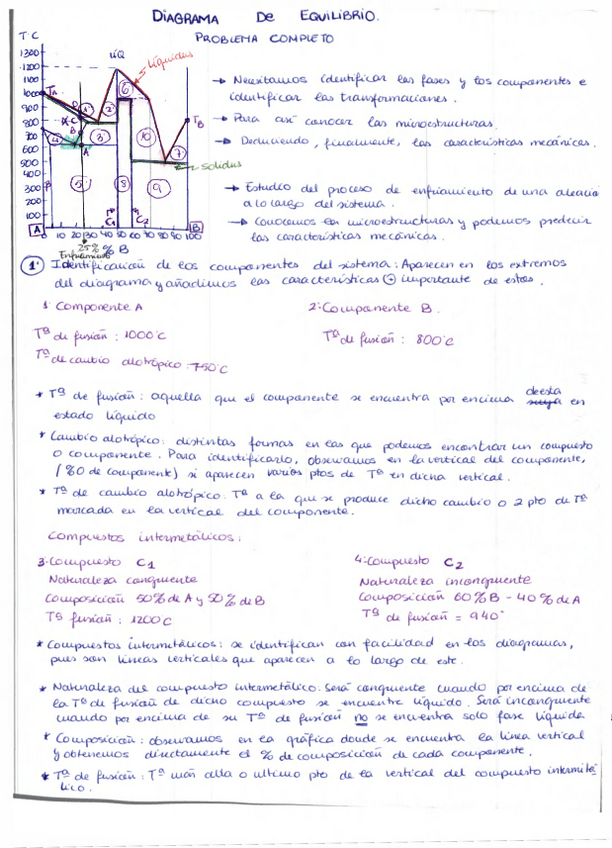 DIAGRAMA DE EQUILIBRIO.
PROBLEMA COMPLETO
T: C
LIQ
líquidus
1300
1200
1100
1000
900
800
700
600
500
400
300
200
100
TA
TB
solidus
C1
C2
A
B
0 10 20 30 40 50 60 70 80 90 100
25% % B
Enfriamiento
→ Necesitamos identificar las fases y los componentes e
identificar las transformaciones.
→ Para así conocer las microestructuras.
→ Deduciendo, finalmente, las características mecánicas.
→ Estudio del proceso de enfriamiento de una aleación
a lo largo del sistema.
→ Conocemos la microestructuras y podemos predecir
las características mecánicas.
1º Identificación de los componentes del sistema: Aparecen en los extremos
del diagrama y añadimos las características + importante de estos.
1: Componente A
2: Componente B.
Tª de fusión: 1000ºC
Tª de fusión: 800ºC
Tª de cambio alotrópico: 750ºC
* Tª de fusión: aquella que el componente se encuentra por encima de esta en
estado líquido
* Cambio alotrópico: distintas formas en las que podemos encontrar un compuesto
o componente. Para identificarlo, observamos en la vertical del componente,
(%0 de componente) si aparecen varios ptos de Tª en dicha vertical.
* Tª de cambio alotrópico: Tª a la que se produce dicho cambio o 2 pto de Tª
marcada en la vertical del componente.
Compuestos intermetálicos:
3: Compuesto C1
4: Compuesto C2
Naturaleza congruente
Naturaleza incongruente
Composición 50% de A y 50% de B
Composición 60% B - 40% de A
Tª fusión: 1200C
Tª de fusión = 940º
* Compuestos intermetálicos: se identifican con facilidad en los diagramas,
pues son líneas verticales que aparecen a lo largo de este.
* Naturaleza del compuesto intermetálico: Será congruente cuando por encima de
la Tª de fusión de dicho compuesto se encuentre líquido. Será incongruente
cuando por encima de su Tª de fusión no se encuentra solo fase líquida.
* Composición: observamos en la gráfica donde se encuentra la línea vertical
y obtenemos directamente el % de composición de cada componente.
* Tª de fusión: Tª más alta o ultimo pto de la vertical del compuesto intermetá
lico.